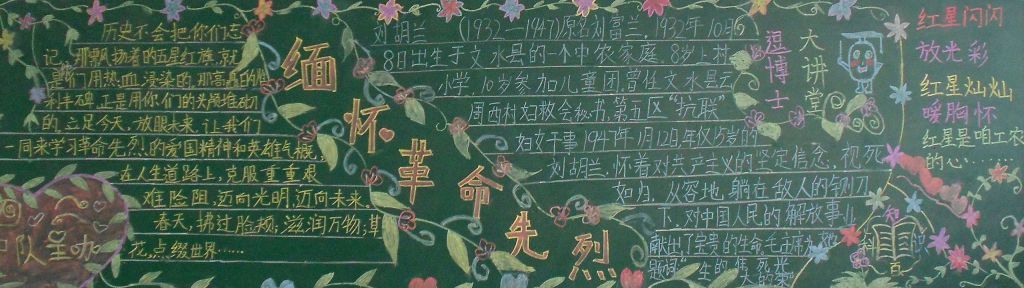 历史不会把你们忘
记,那飘扬着的五星红旗,就
是你们用热血浸染的,那高高的胜
利丰碑,正是用你们的头颅堆切
的.立足今天,放眼未来,让我们
一同来学习革命先烈的爱国精神和英雄气概,
在人生道路上,克服重重艰
难险阻,迈向光明,迈向未来.
春天,拂过脸颊,滋润万物;
花,点缀世界……
缅怀革命先烈
刘胡兰 (1932—1947)原名刘富兰,1932年10月
8日出生于文水县的一个中农家庭 8岁上村
小学,10岁参加儿童团,曾任文水县云
周西村妇救会秘书,第五区"抗联"
妇女干事 1947年1月12日年仅15岁的
刘胡兰,怀着对共产主义的坚定信念,视死
如归,从容地躺在敌人的铡刀
下,对中国人民的解放事业
献出了宝贵的生命,毛主席为她
题词"生的伟大 死的光荣"
逗博士
大讲堂
红星闪闪
放光彩
红星灿灿
暖胸怀
红星是咱工农
的心……
中队主办